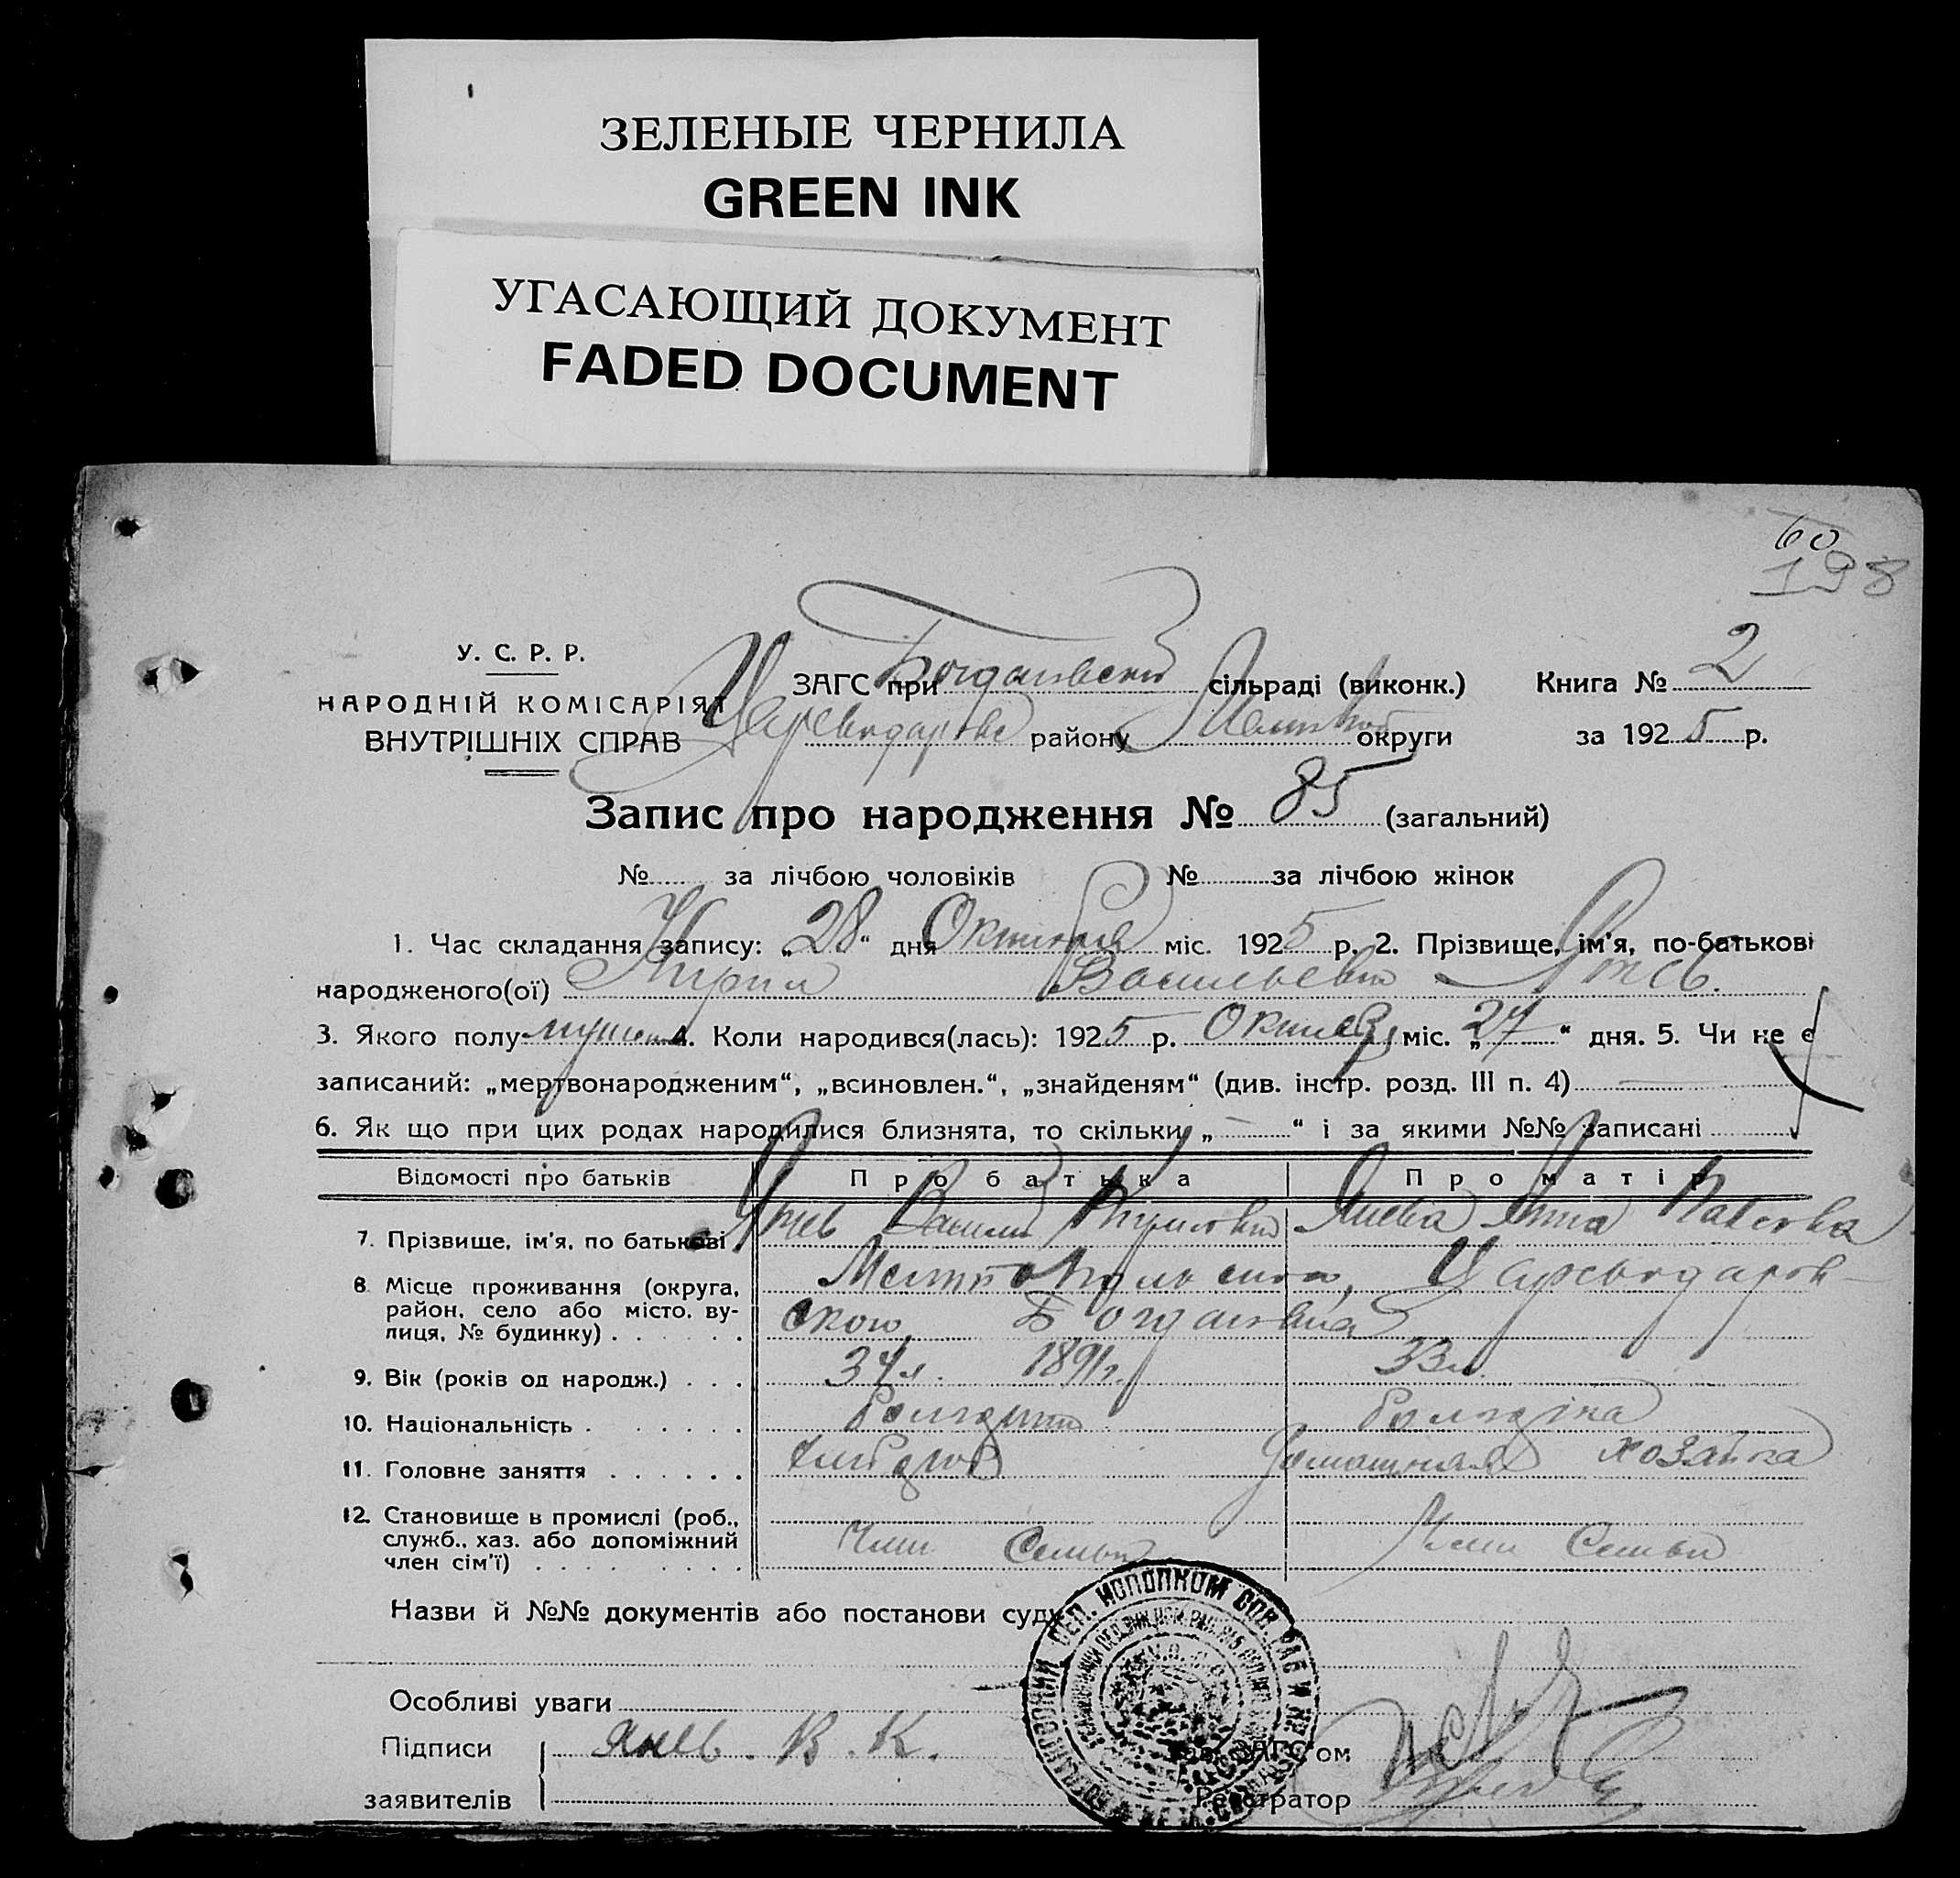 ЗЕЛЕНЫЕ ЧЕРНИЛА
GREEN INK
УГАСАЮЩИЙ ДОКУМЕНТ
FADED DOCUMENT
60
198
У. С. Р. Р.
НАРОДНІЙ КОМІСАРІЯТ
ВНУТРІШНІХ СПРАВ
ЗАГС при Богдановский сільраді (виконк.) Книга № 2
району округи за 1925 р.
Запис про народження № 85 (загальний)
№ за лічбою чоловіків № за лічбою жінок
1. Час складання запису: „28“ дня Октября міс. 1925 р. 2. Прізвище, ім'я, по-батькові
народженого(ої) Кирил Васильевич Янев.
3. Якого полу 4. Коли народився(лась): 1925 р. Октября міс. „27“ дня. 5. Чи не є
записаний: „мертвонародженим“, „всиновлен.“, „знайденям“ (див. інстр. розд. III п. 4)
6. Як що при цих родах народилися близнята, то скільки „—“ і за якими №№ записані
Відомості про батьків Про батька Про матір
7. Прізвище, ім'я, по батькові Янев Василий Кирилович Янева Анна
8. Місце проживання (округа, район, село або місто, вулиця, № будинку) Мелитопольского, Царсьводаровского, Богдановка
9. Вік (років од народж.) 34 л. 1891 г. 33 л.
10. Національність Болгарин Болгарка
11. Головне заняття Хлебороб домашняя хозайка
12. Становище в промислі (роб., служб., хаз. або допоміжний член сім'ї) Член Семьи Член Семьи
Назви й №№ документів або постанови суду
Особливі уваги
Підписи заявителів Янев. В. К.
ЗАГС'ом
Реєстратор